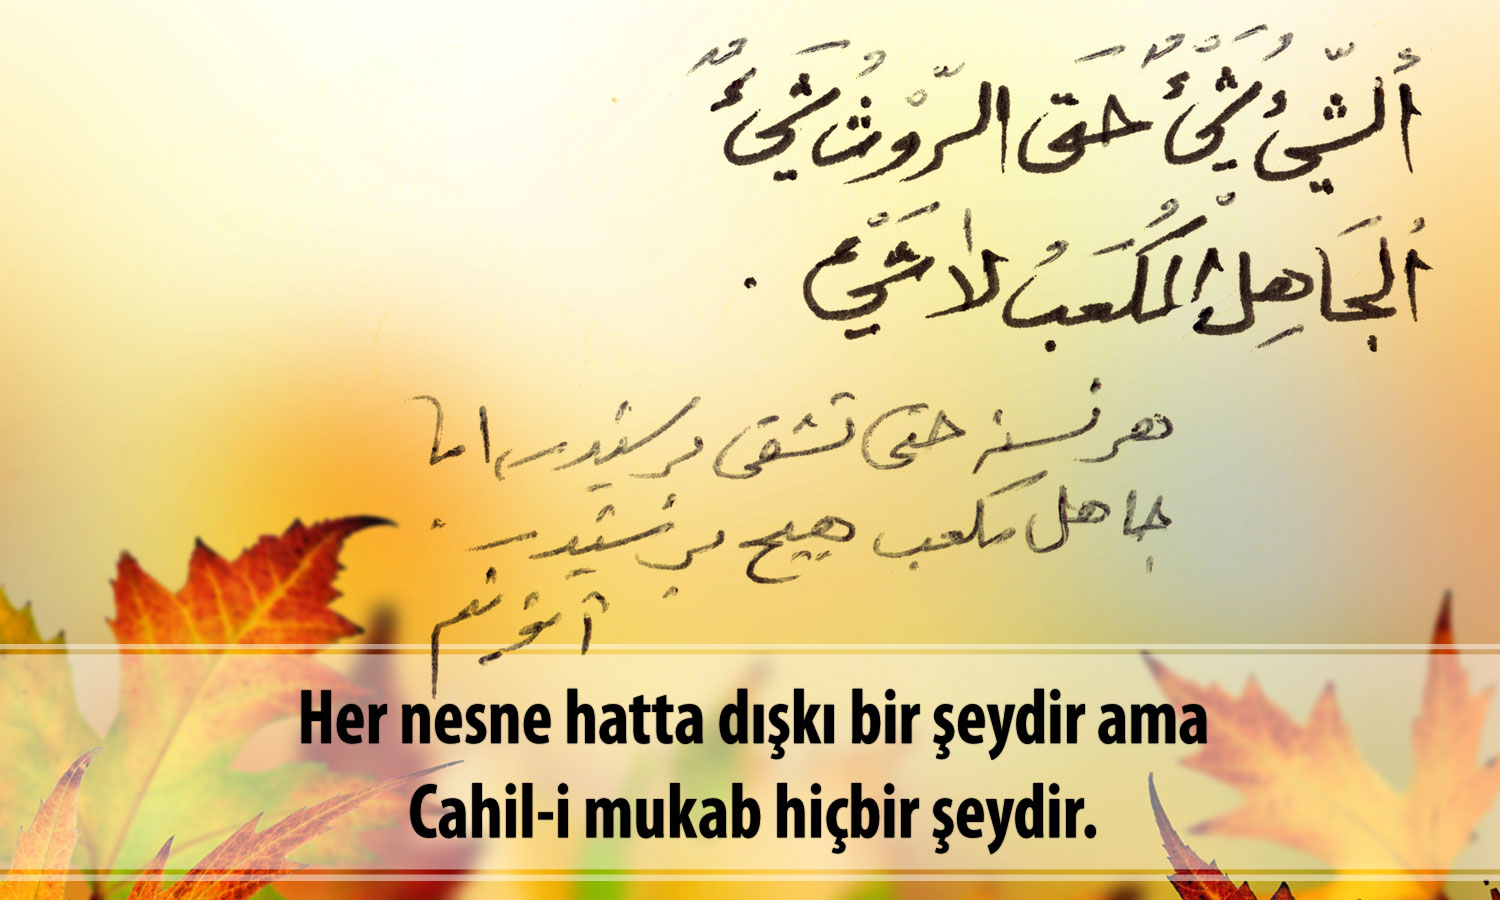 اُلشّيْءُ شَيْءٌ حَتى الرّوْثُ شَيْءٌ
اُلجَاهِلُ المُكَعَبُ لاٰ شَيْء .
هر نسنه حتى دشقى بر شيدر اما
جاهل مكعب هيچ بر شيدر .
Her nesne hatta dışkı bir şeydir ama
Cahil-i mukab hiçbir şeydir.